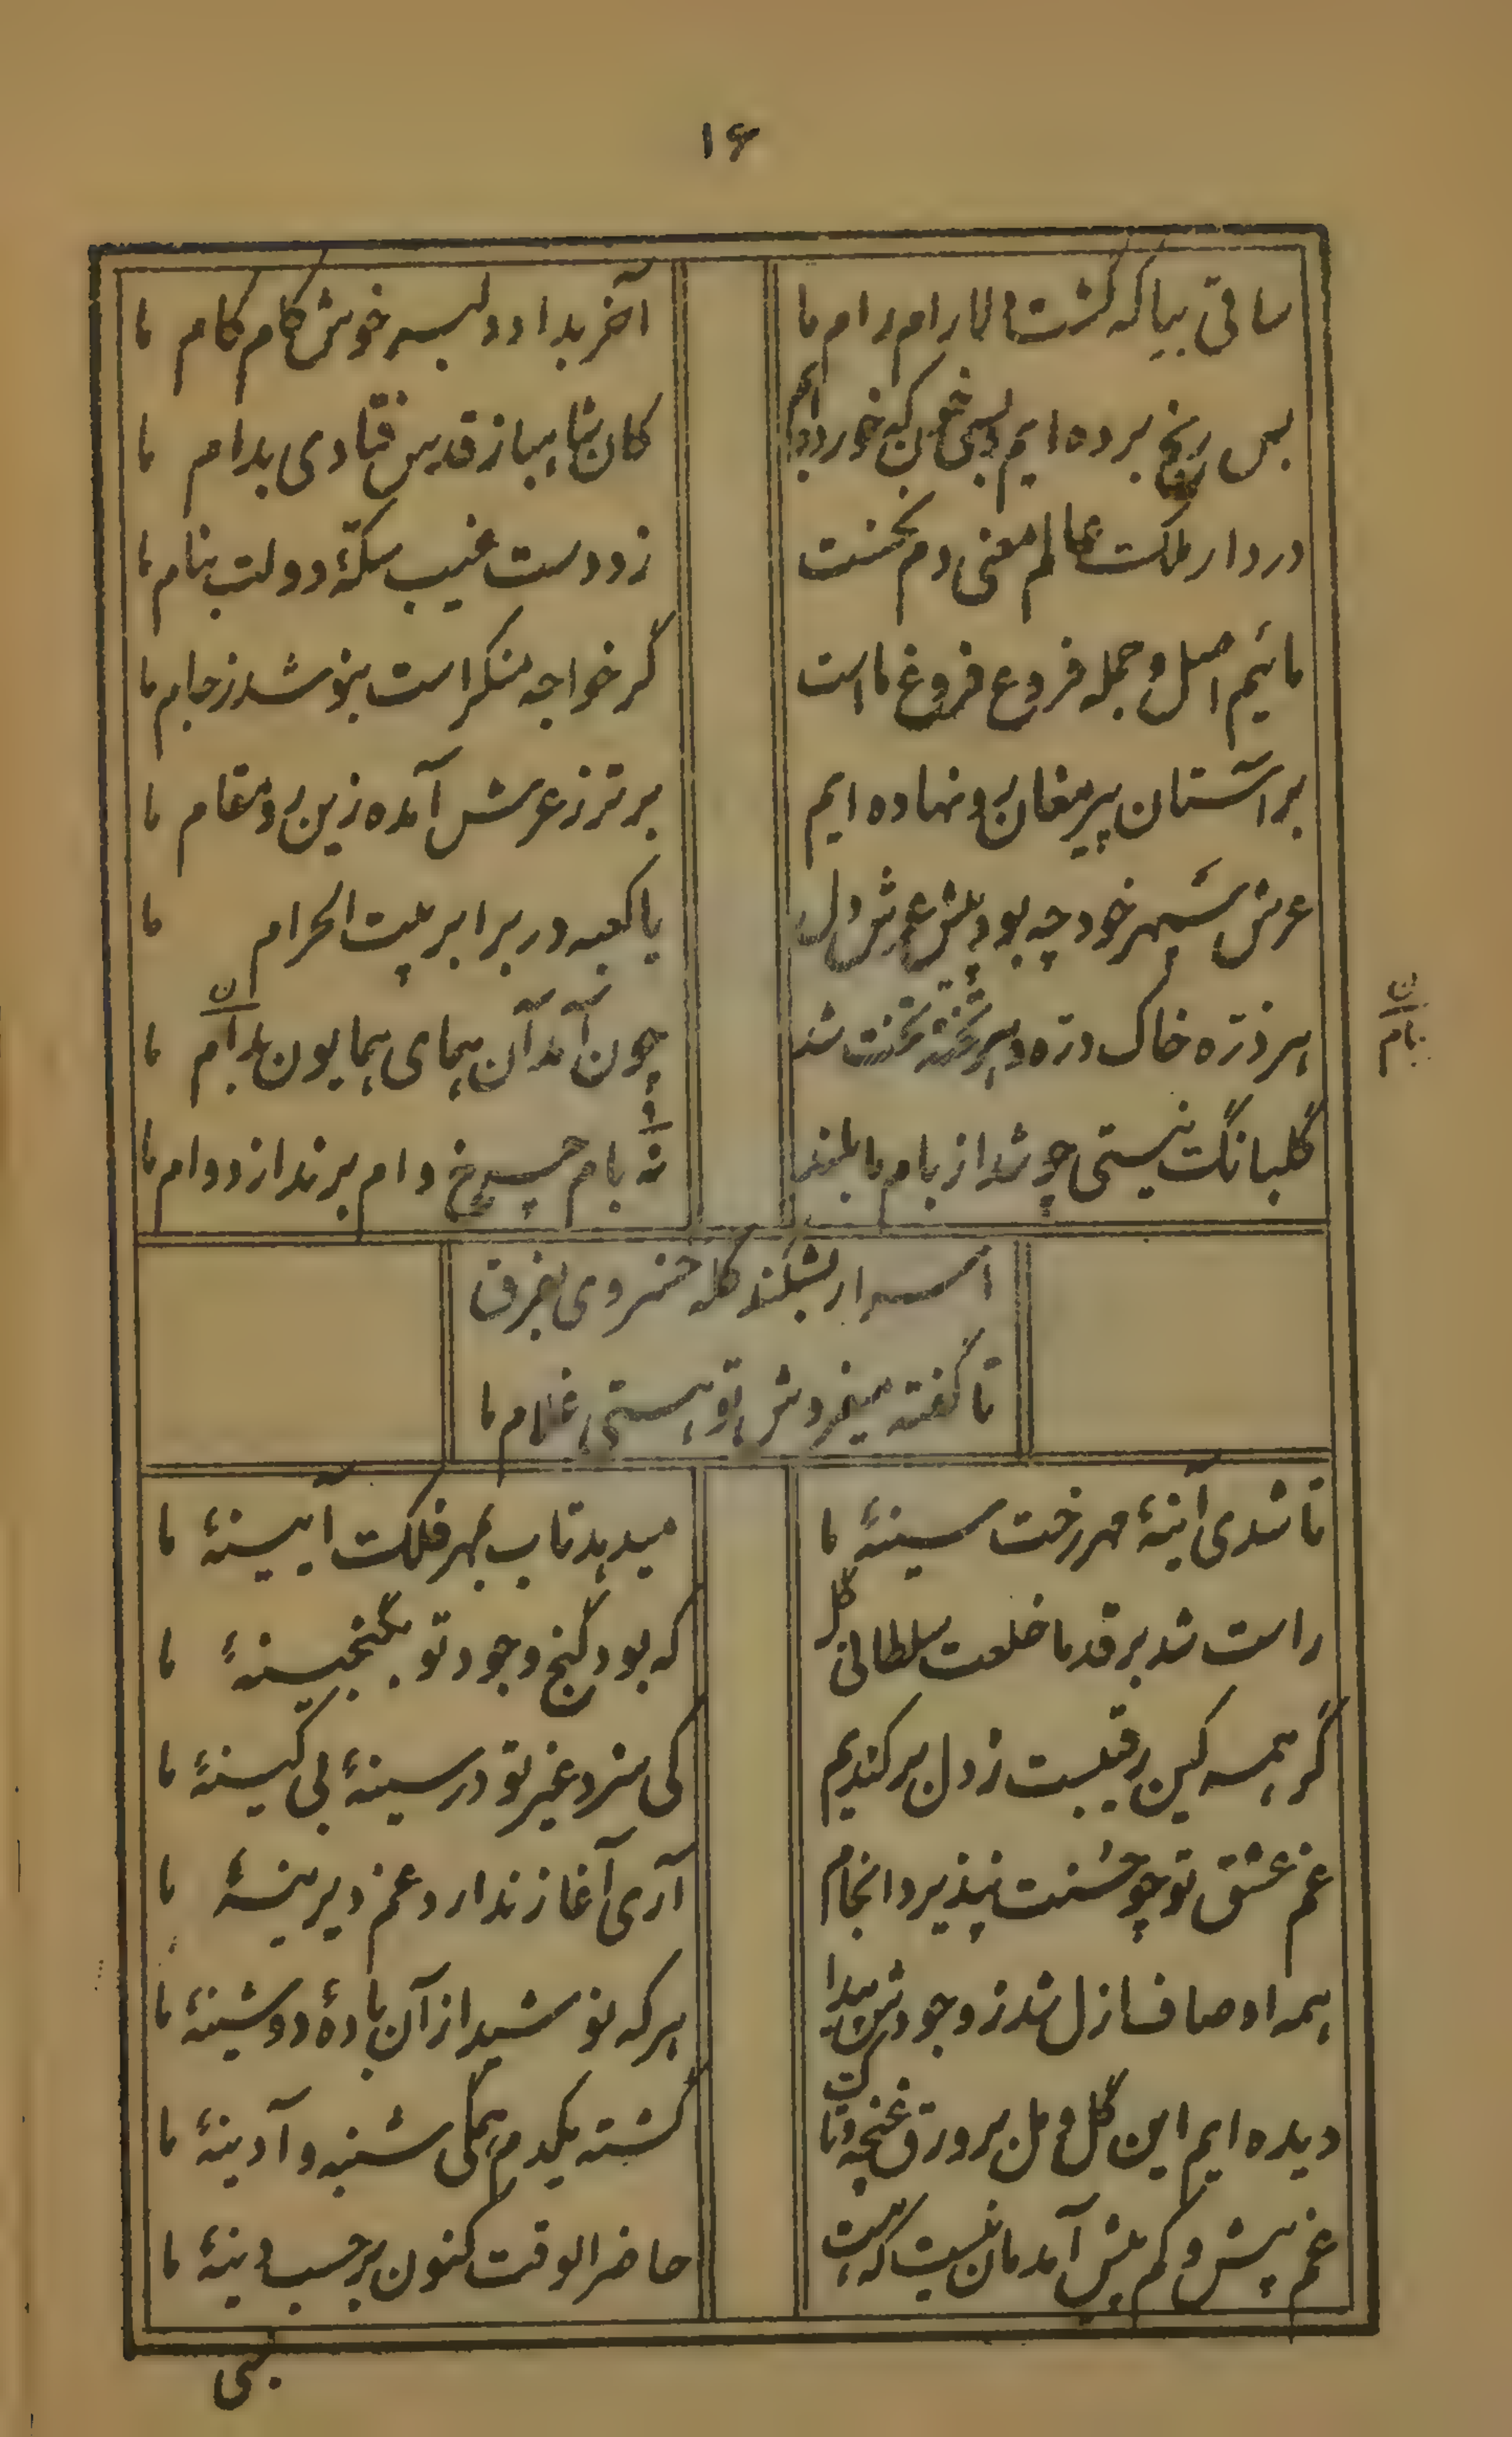 ۱۶
ساقی بیا که گشت دلارام رام ما
آخر بداد دلبر خوش کام کام ما
بس رنج برده ایم و بسی خون که خورده ایم
کان شاهباز قدس فتادی بدام ما
در دار ملکت عالم معنی دم نخست
زد دست غیب سکّهٔ دولت بنام ما
مائیم اصل و جمله فروع فروغ ماست
گر خواجه منکر است بنوشد ز جام ما
بر آستان پیر مغان رو نهاده ایم
برتر ز عرش آمده زین رو مقام ما
عرش سپهر خود چه بود پیش عرش دل
یا کعبه در برابر بیت الحرام ما
هر ذرّه خاک درّه و هر تخته تخت شد
چون آمد آن همای همایون بدام ما
ن
ن
بام
گلبانگ نیستی چو شد از بام ما بلند
نه بام چرخ وام برند از دوام ما
اسرار بشکند کله خسروی بفرق
تا گفته میفروش تو هستی غلام ما
تا شدی آینهٔ مهر رخت سینهٔ ما
میدهد تاب بمهر فلکت آیینهٔ ما
راست شد بر قد ما خلعت سلطانی کل
که بود گنج وجود تو بگنجینهٔ ما
گر همه کین رقیبست ز دل برکندیم
کی سزد غیر تو در سینهٔ بی کینهٔ ما
غم عشق تو چو حسنت نپذیرد انجام
آری آغاز ندارد غم دیرینهٔ ما
همه اوصاف ازل شد ز وجودش پیدا
هر که نوشید از آن بادهٔ دوشینهٔ ما
دیده ایم این گل و مل بر ورق غنچه و تاک
گشته یکدم همگی شنبه و آدینهٔ ما
غم پیش و کم پیش آمدمان نیست که هست
حاضر الوقت کنون بر حسب دینهٔ ما